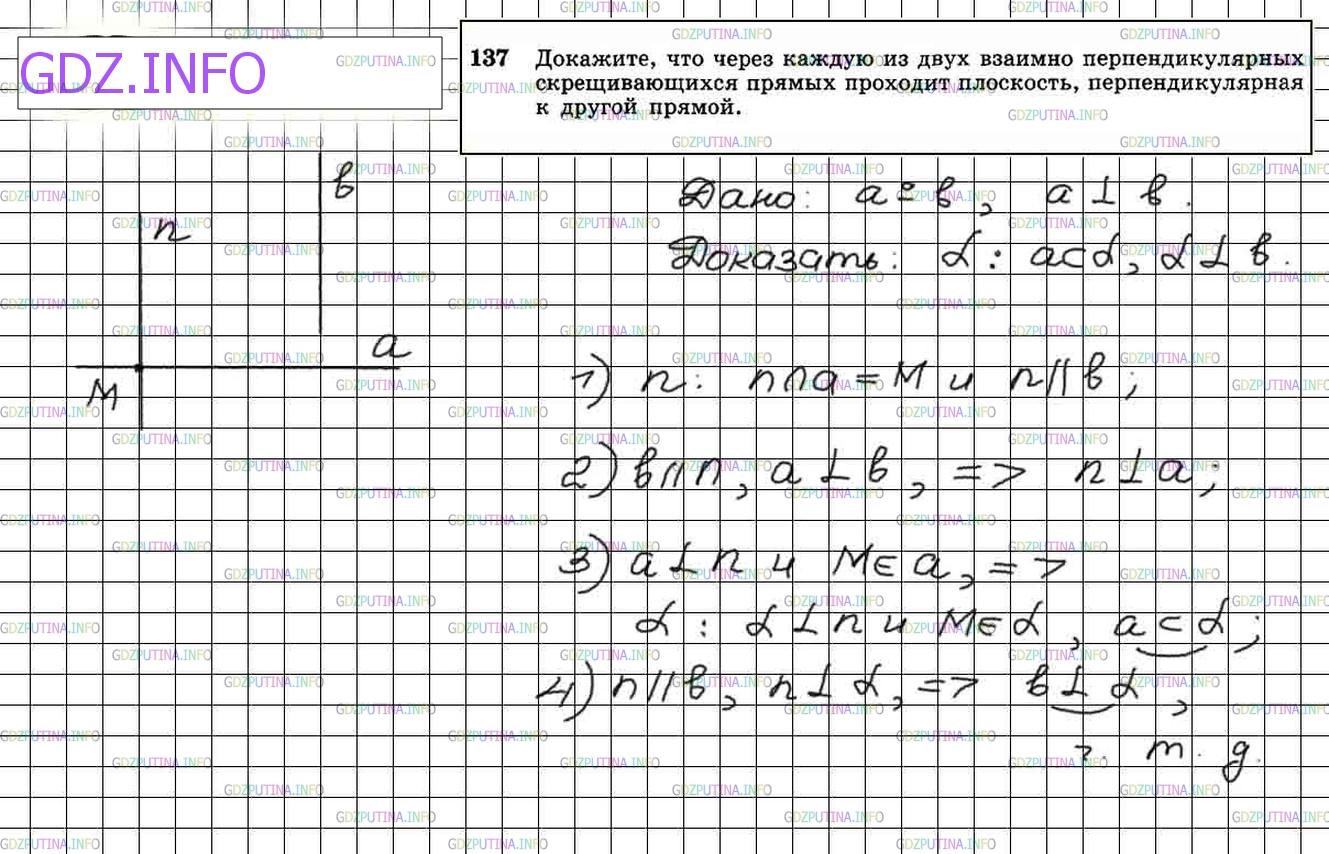 GDZ.INFO
137 Докажите, что через каждую из двух взаимно перпендикулярных
скрещивающихся прямых проходит плоскость, перпендикулярная
к другой прямой.
n
в
a
M
Дано: a ∸ в, a ⊥ в.
Доказать: α : a⊂α, α ⊥ в.
1) n: n∩a = M и n || в;
2) в || n, a ⊥ в, => n ⊥ a;
3) a ⊥ n и M∈a, =>
α : α ⊥ n и M∈α, a⊂α;
4) n || в, n ⊥ α, => в ⊥ α,
ч. т. д.
GDZPUTINA.INFO